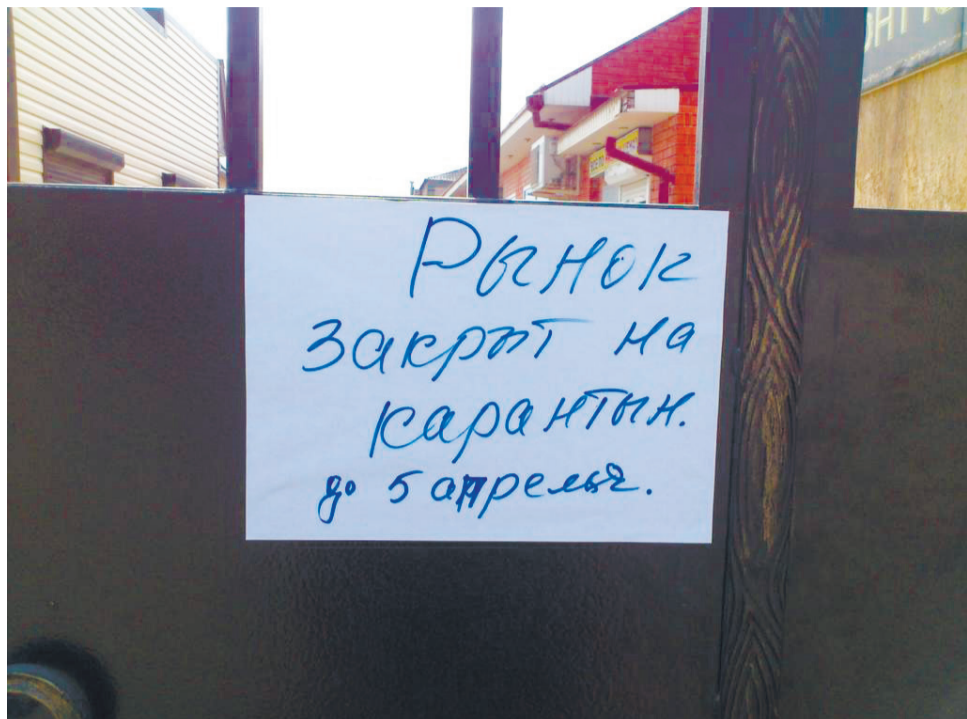 Рынок
закрыт на
карантын.
до 5 апреля.